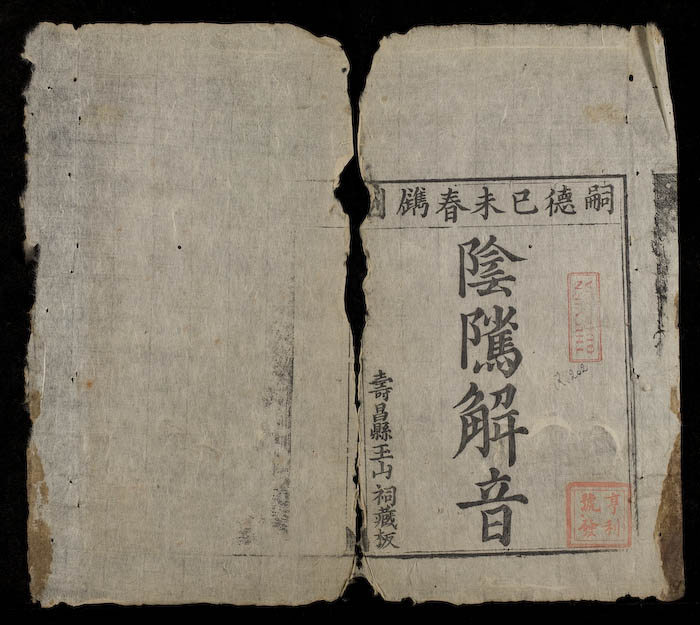 嗣德己未春鐫
陰隲解音
壽昌縣玉山祠藏板
亨利
號發